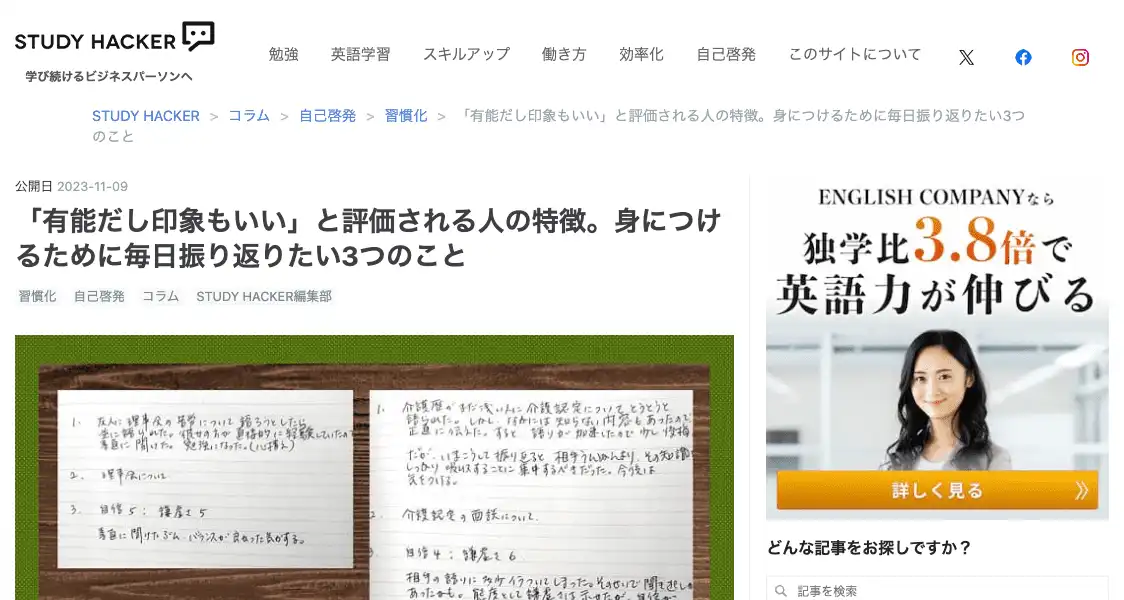 STUDY HACKER
学び続けるビジネスパーソンへ
勉強 英語学習 スキルアップ 働き方 効率化 自己啓発 このサイトについて
STUDY HACKER > コラム > 自己啓発 > 習慣化 > 「有能だし印象もいい」と評価される人の特徴。身につけるために毎日振り返りたい3つ
のこと
公開日 2023-11-09
「有能だし印象もいい」と評価される人の特徴。身につけ
るために毎日振り返りたい3つのこと
習慣化 自己啓発 コラム STUDY HACKER編集部
1.
素直に聞けた。勉強になった。(心構え)
2. 理事会について
3. 自信 5 : 謙虚さ 5
素直に聞けたぶん、バランスが良かった気がする。
1. 介護歴がまだ浅い人に介護認定についてとうとうと
語られた。しかし、なかには知らない内容もあったので
正直に伝えた。すると、語りが加速したので少し後悔
だが、いまこうして振り返ると、相手うんぬんより、その知識
しっかり吸収することに集中するべきだった。今後は
気をつける。
2. 介護認定の面談について
自信 4 : 謙虚さ 6
ENGLISH COMPANYなら
独学比3.8倍で
英語力が伸びる
詳しく見る
どんな記事をお探しですか？
記事を検索